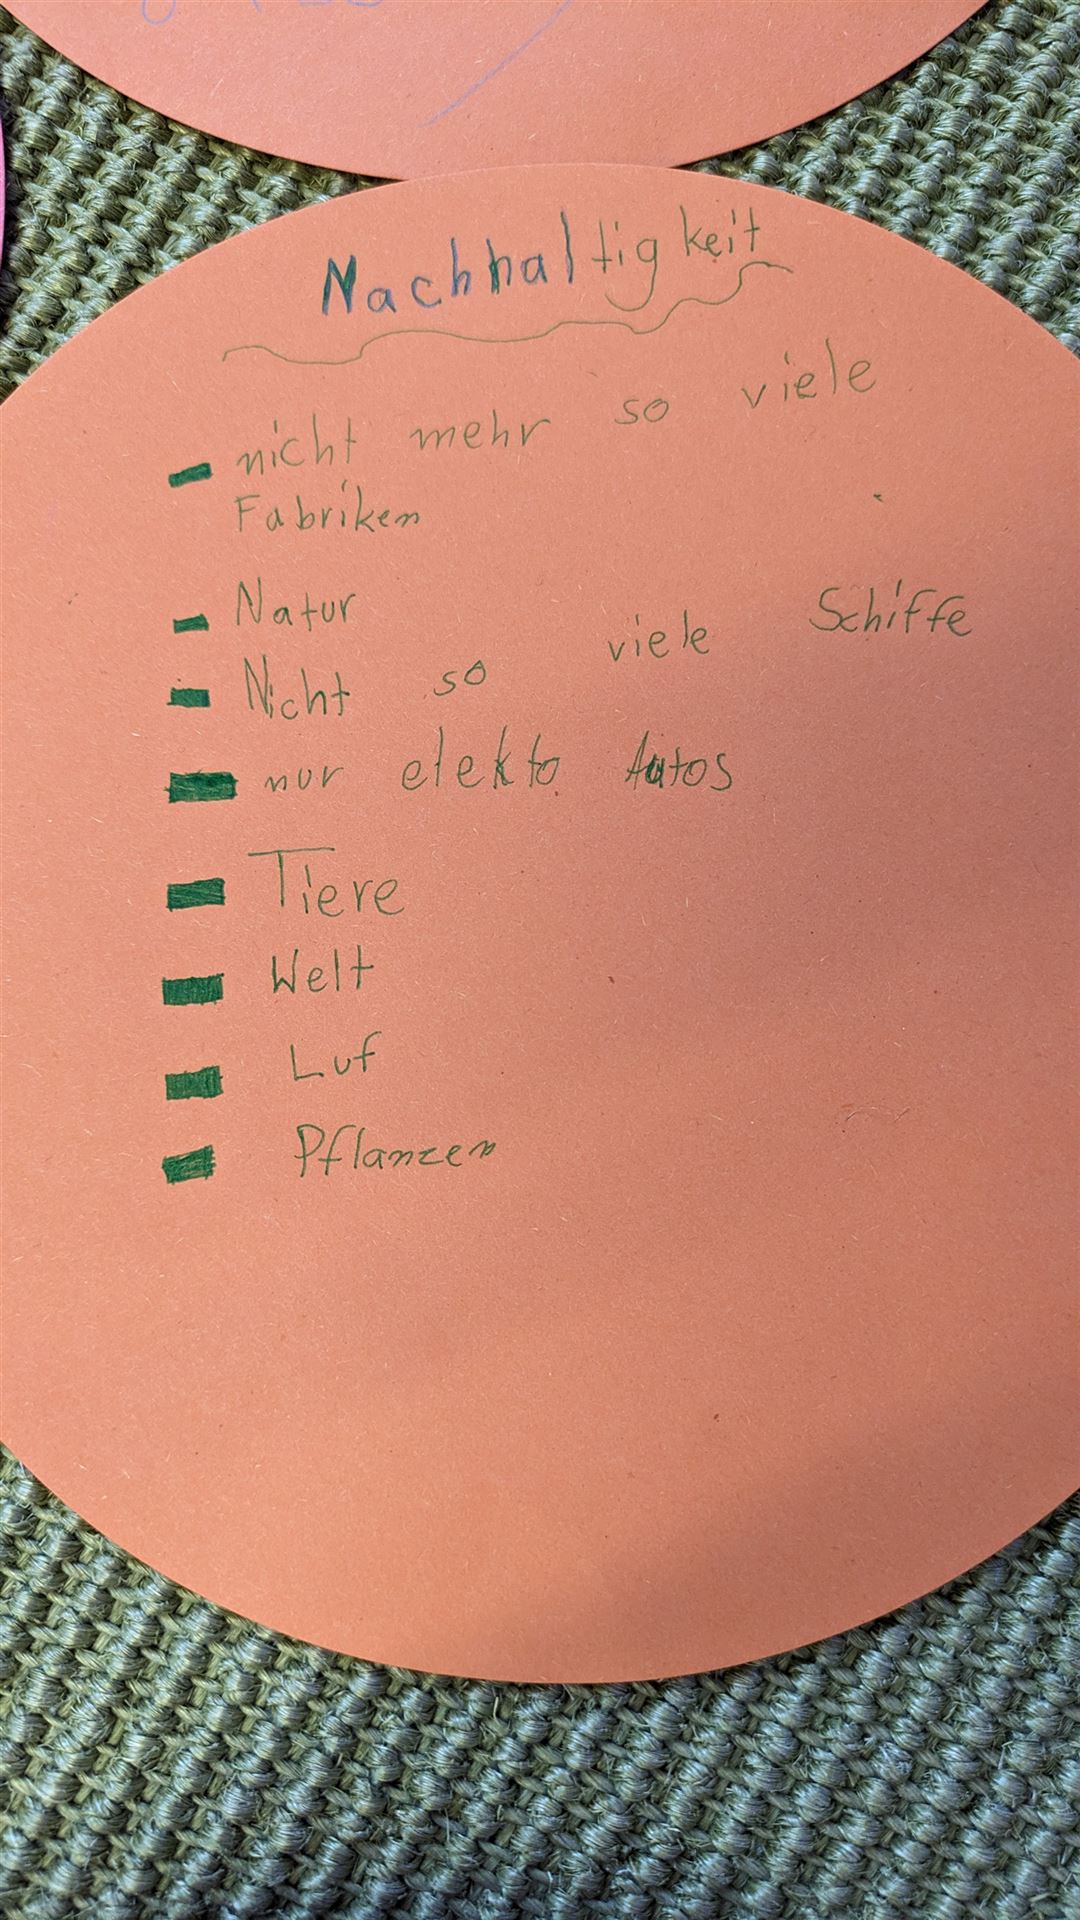 Nachhaltigkeit
- nicht mehr so viele
Fabriken
- Natur
- Nicht so viele Schiffe
- nur elekto Autos
- Tiere
- Welt
- Luf
- Pflanzen